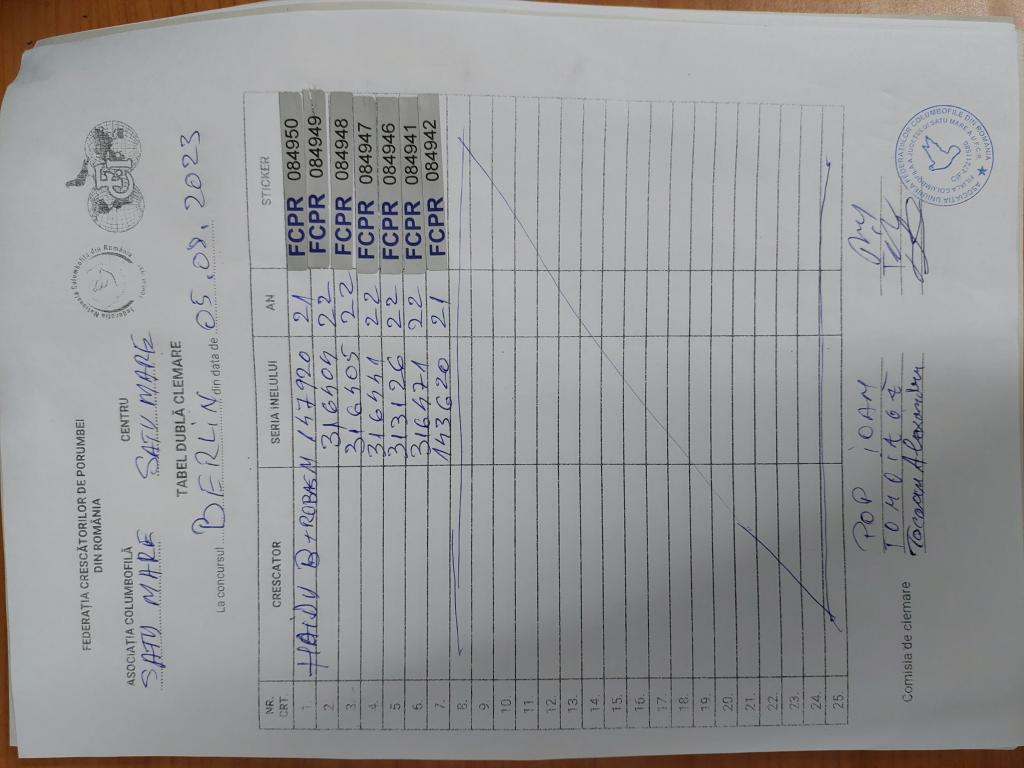 FEDERAȚIA CRESCĂTORILOR DE PORUMBEI
DIN ROMÂNIA
ASOCIAȚIA COLUMBOFILĂ CENTRU
SATU MARE SATU MARE
TABEL DUBLĂ CLEMARE
La concursul BERLIN din data de 05.08.2023
NR. CRT. CRESCATOR SERIA INELULUI AN STICKER
1. HAIDU 147920 21 FCPR 084950
2. 22 FCPR 084949
3. 316405 22 FCPR 084948
4. 316441 22 FCPR 084947
5. 313126 22 FCPR 084946
6. 316471 22 FCPR 084941
7. 143620 21 FCPR 084942
8.
9
10.
11.
12.
13.
14.
15.
16.
17.
18.
19.
20.
21.
22.
23.
24.
25.
Comisia de clemare
POP IOAN
Federația Națională Columbofilă din România
FCI